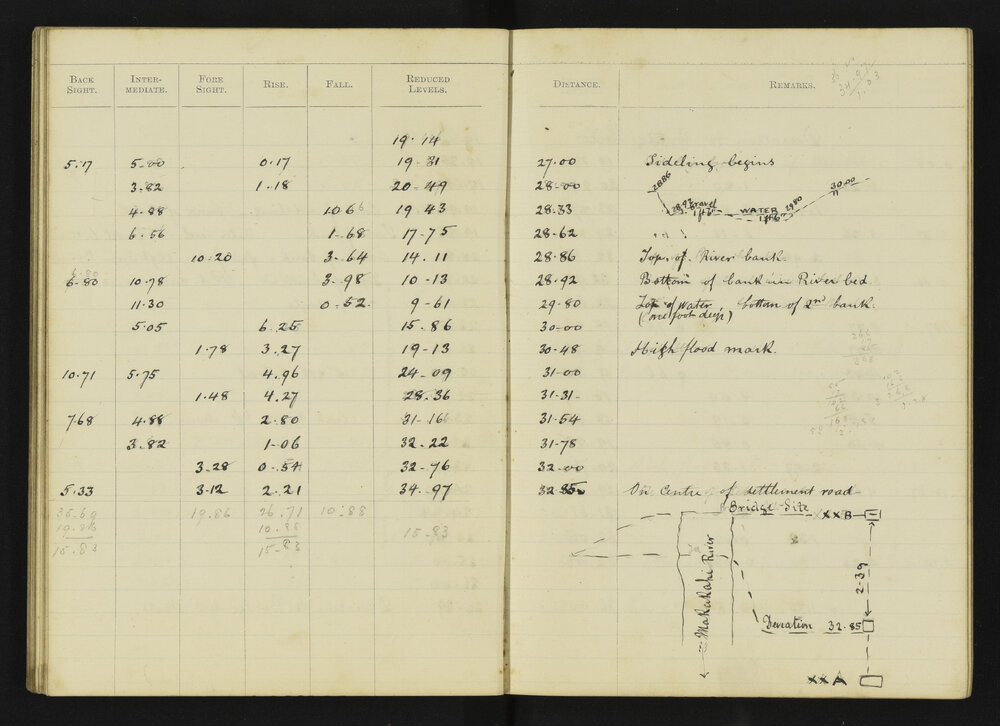 BACK SIGHT. INTER-MEDIATE. FORE SIGHT. RISE. FALL. REDUCED LEVELS. DISTANCE. REMARKS.
19.14
5.17 5.00 0.17 19.31 27.00 Sideling begins
3.82 1.18 20-49 28-00
4.88 1.06 19.43 28.33
6.56 1-68 17-75 28-62
10.20 3-64 14.11 28.86 Top of River bank.
6-80 10.78 3-98 10-13 28.92 Bottom of bank in River bed.
11.30 0-52 9-61 29.80 Top of water, bottom of 2nd bank.
(one foot deep)
5.05 6.25 15.86 30-00
1.78 3.27 19-13 30-48 High flood mark.
10.71 5.75 4.96 24-09 31-00
1.48 4.27 28.36 31-31
7.68 4.88 2.80 31-16 31.54
3.82 1-06 32-22 31-78
3-28 0-54 32-76 32-00
5.33 3-12 2.21 34-97 32 85 On Centre of settlement road
35-69 19.86 26.71 10.88
19.86 10.88 15-83
15.83 15-83
2886
Gravel
WATER
2980
30.00
Bridge Site XXB
Makakahi River
2-39
Deviation 32.85
XXA